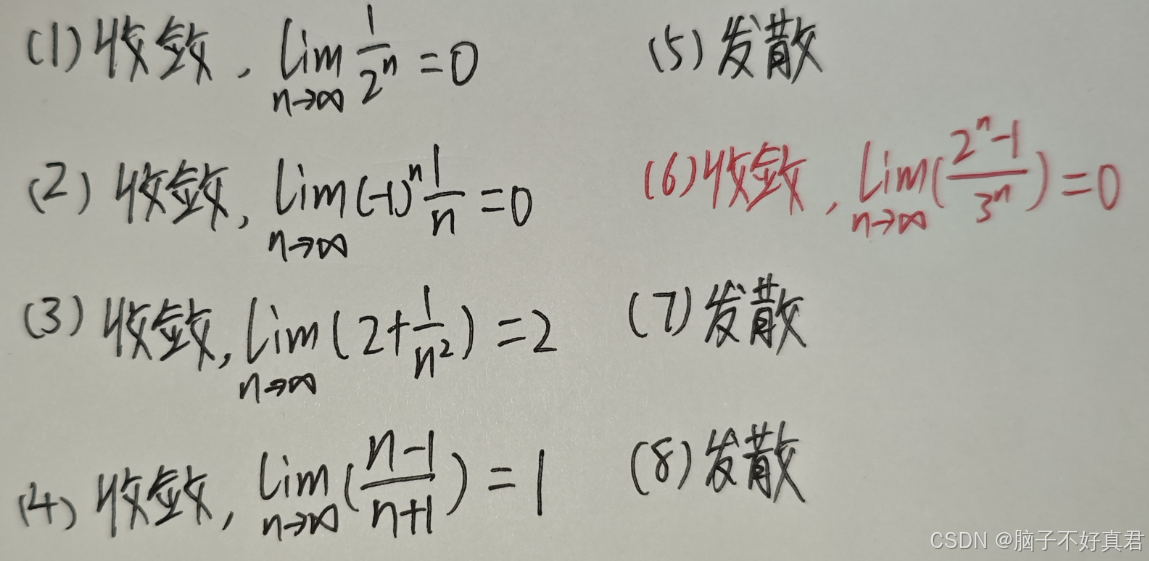 (1) 收敛, lim_{n→∞} 1/2^n = 0
(2) 收敛, lim_{n→∞} (-1)^n 1/n = 0
(3) 收敛, lim_{n→∞} (2+1/n^2) = 2
(4) 收敛, lim_{n→∞} ((n-1)/(n+1)) = 1
(5) 发散
(6) 收敛, lim_{n→∞} ((2^n-1)/3^n) = 0
(7) 发散
(8) 发散
CSDN @脑子不好真君